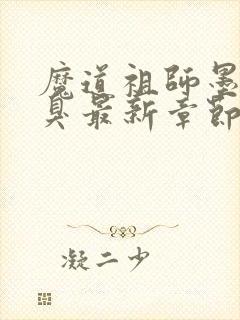 魔道祖師墨
臭最新章節
凝二少